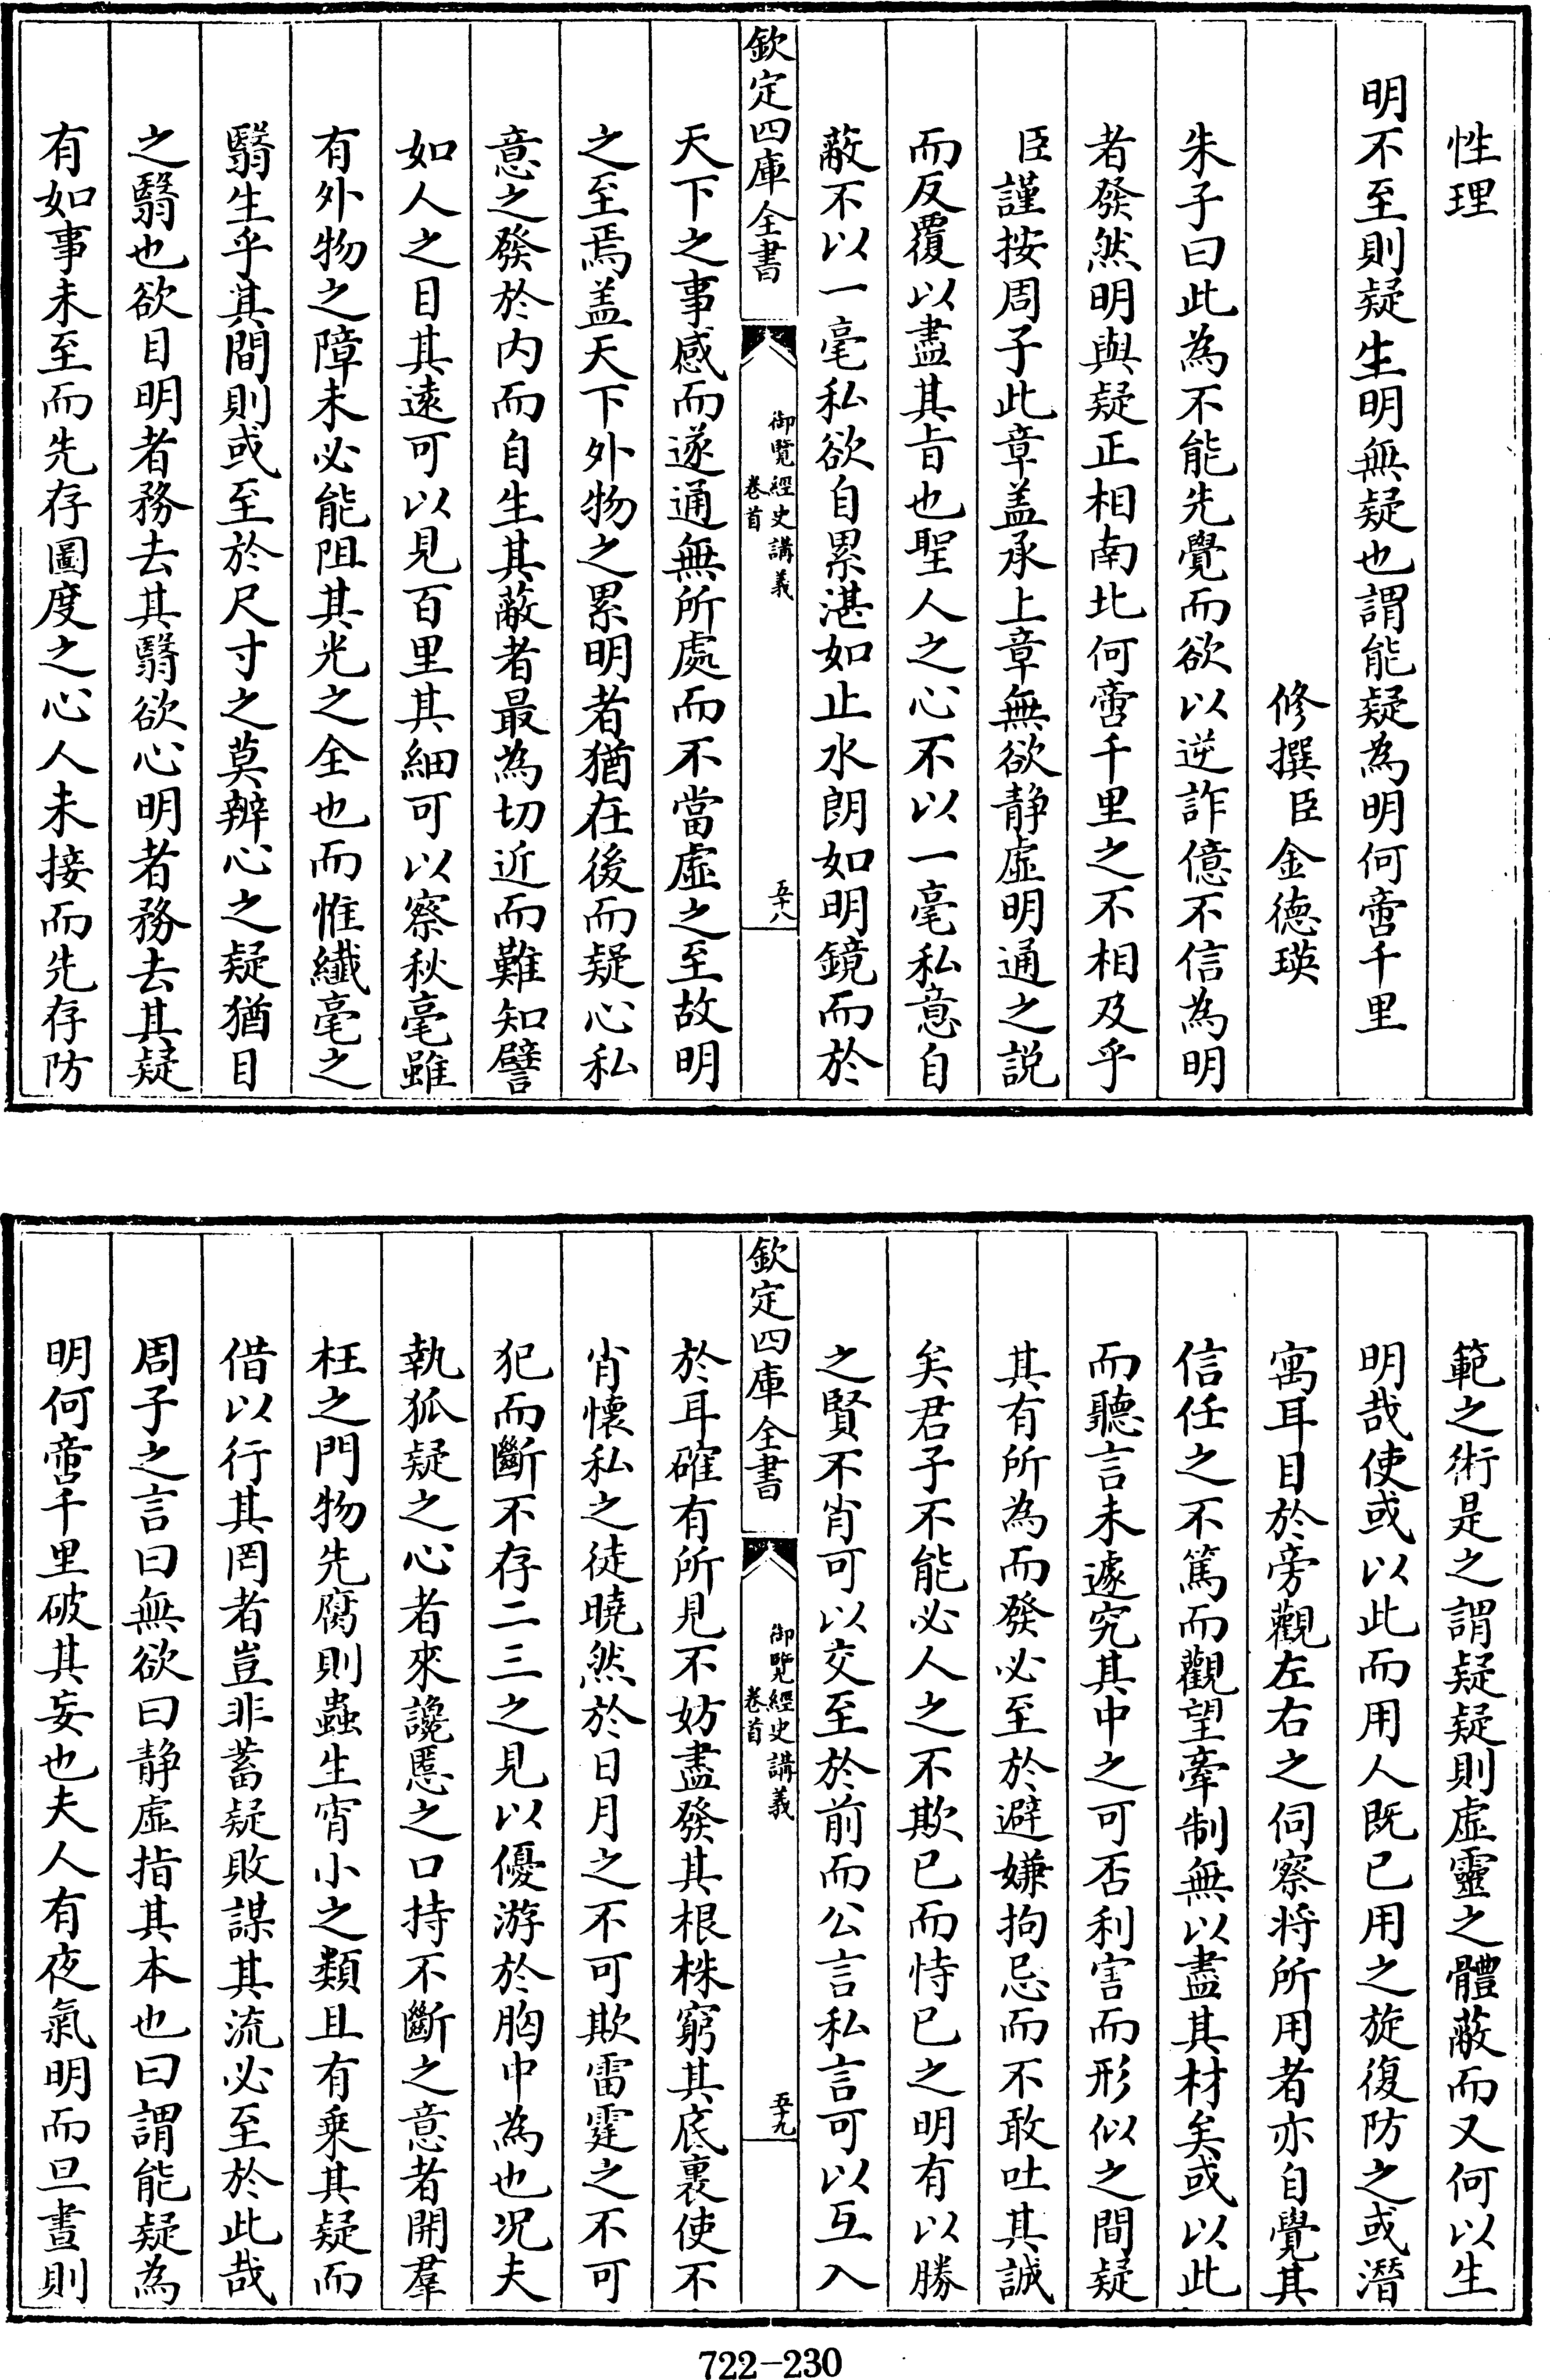 性理
明不至則疑生明無疑也謂能疑為明何啻千里
修撰臣金德瑛
朱子曰此為不能先覺而欲以逆詐億不信為明
者發然明與疑正相南北何啻千里之不相及乎
臣謹按周子此章盖承上章無欲静虛明通之説
而反覆以盡其㫖也聖人之心不以一毫私意自
蔽不以一毫私欲自累湛如止水朗如明鏡而於
欽定四庫全書
御覽經史講義
卷首
五十八
天下之事感而遂通無所處而不當虛之至故明
之至焉盖天下外物之累明者猶在後而疑心私
意之發於内而自生其蔽者最為切近而難知譬
如人之目其遠可以見百里其細可以察秋毫雖
有外物之障未必能阻其光之全也而惟纖毫之
翳生乎其間則或至於尺寸之莫辨心之疑猶目
之翳也欲目明者務去其翳欲心明者務去其疑
有如事未至而先存圖度之心人未接而先存防
範之術是之謂疑疑則虛靈之體蔽而又何以生
明哉使或以此而用人既已用之旋復防之或潛
寓耳目於旁觀左右之伺察将所用者亦自覺其
信任之不篤而觀望牽制無以盡其材矣或以此
而聽言未遽究其中之可否利害而形似之間疑
其有所為而發必至於避嫌拘忌而不敢吐其誠
矣君子不能必人之不欺已而恃已之明有以勝
之賢不肖可以交至於前而公言私言可以互入
欽定四庫全書
御覽經史講義
卷首
五十九
於耳確有所見不妨盡發其根株窮其底裏使不
肖懷私之徒曉然於日月之不可欺雷霆之不可
犯而斷不存二三之見以優游於胸中為也況夫
執狐疑之心者來讒慝之口持不斷之意者開羣
枉之門物先腐則蟲生宵小之類且有乗其疑而
借以行其罔者豈非蓄疑敗謀其流必至於此哉
周子之言曰無欲曰静虛指其本也曰謂能疑為
明何啻千里破其妄也夫人有夜氣明而旦晝則
722-230